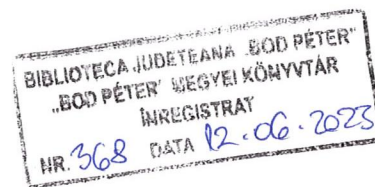 BIBLIOTECA JUDEȚEANA "BOD PÉTER"
"BOD PÉTER" MEGYEI KÖNYVTÁR
ÎNREGISTRAT
NR. 368 DATA 12.06.2023